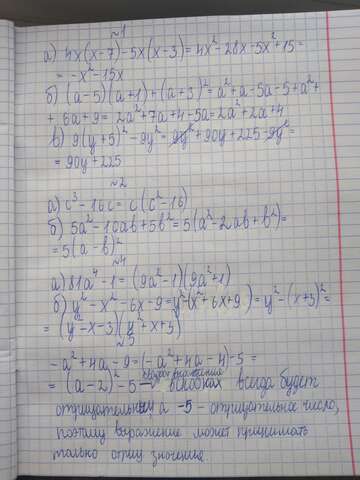 ~1
а) 4x(x-7)-5x(x-3)=4x²-28x-5x²+15=
= -x²-15x
б) (a-5)(a+1)+(a+3)²=a²+a-5a-5+a²+
+ 6a+9= 2a²+7a+4-5a=2a²+2a+4
в) 9(y+5)²-9y²=9y²+90y+225-9y²=
=90y+225
~2
а) c³-16c= c(c²-16)
б) 5a²-10ab+5b²=5(a²-2ab+b²)=
=5(a-b)²
~4
а) 81a⁴-1=(9a²-1)(9a²+1)
б) y²-x²-6x-9=y²-(x²+6x+9)=y²-(x+3)²=
= (y-x-3)(y+x+3)
~5
-a²+4a-9=(-a²+4a-4)-5=
= (a-2)²-5 - выражение в скобках всегда будет
отрицательным, а -5 - отрицательное число,
поэтому выражение может принимать
только отриц значения